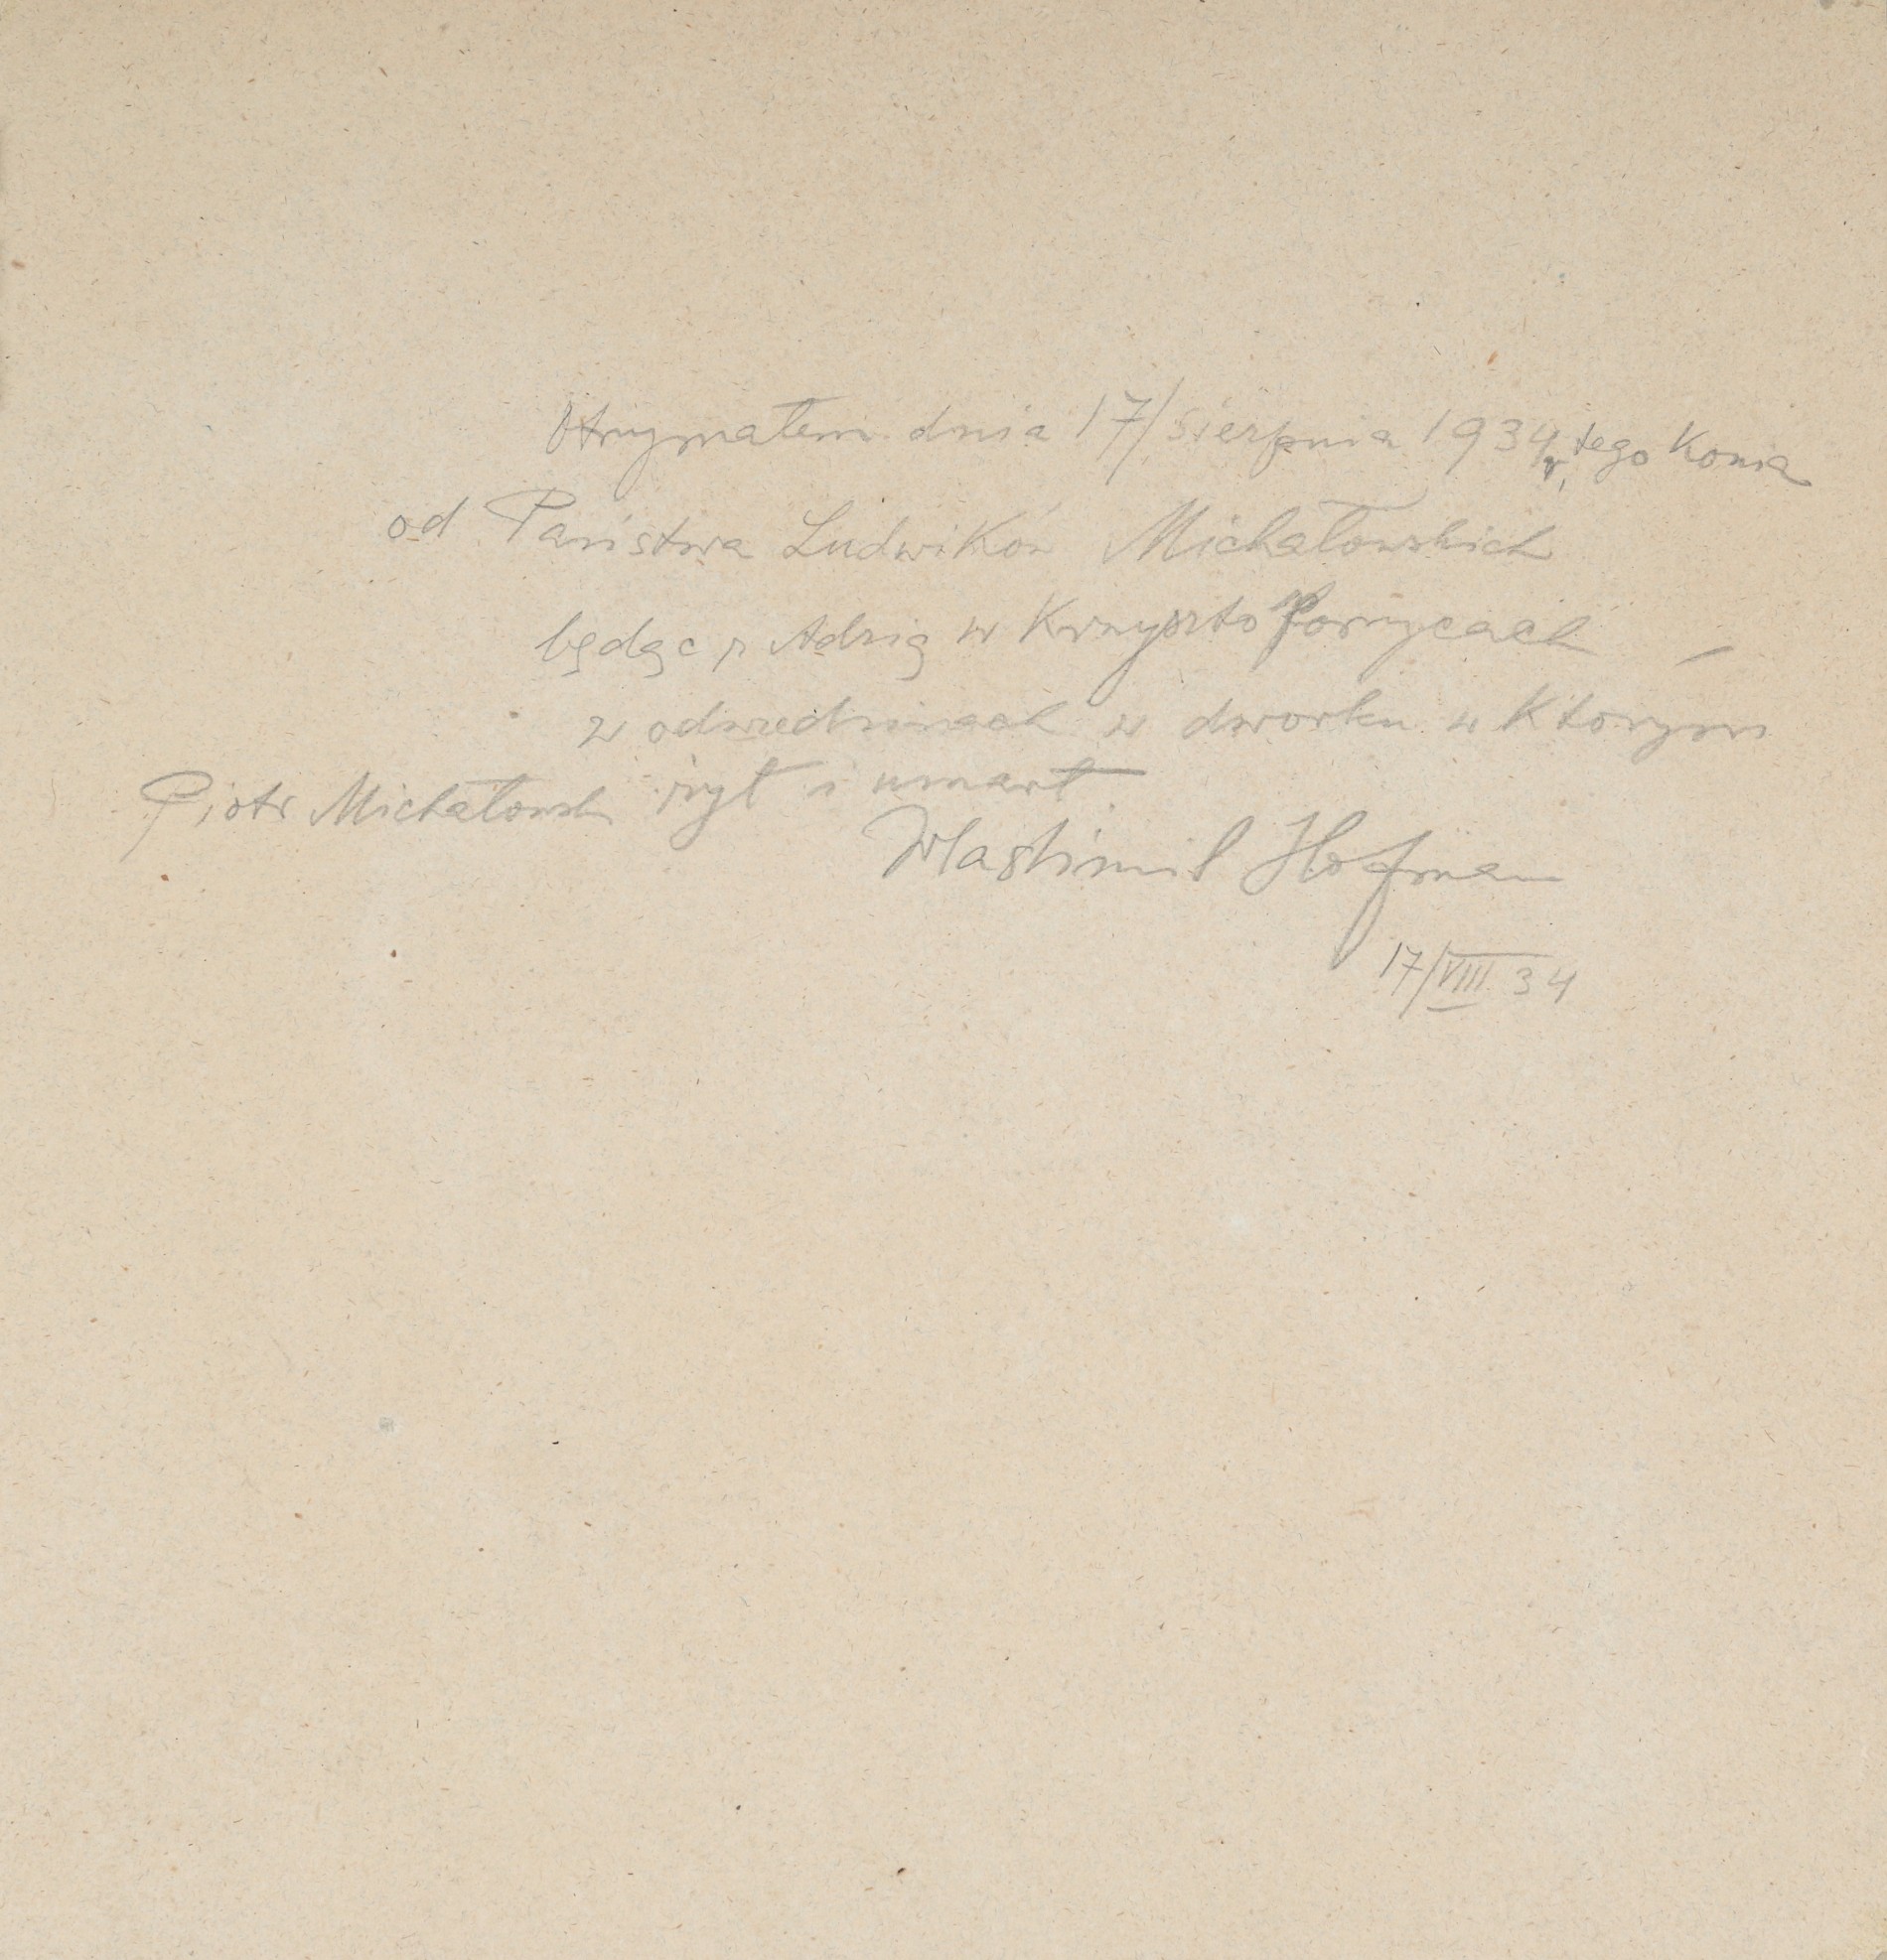 Otrzymałem dnia 17/sierpnia 1934 r. tego Konia
od Państwa Ludwików Michałowskich
będąc z Adzią w Krzysztoforzycach –
w odwiedzinach w dworku w Którym
Piotr Michałowski żył i umarł
Wlastimil Hofman
17/VIII 34